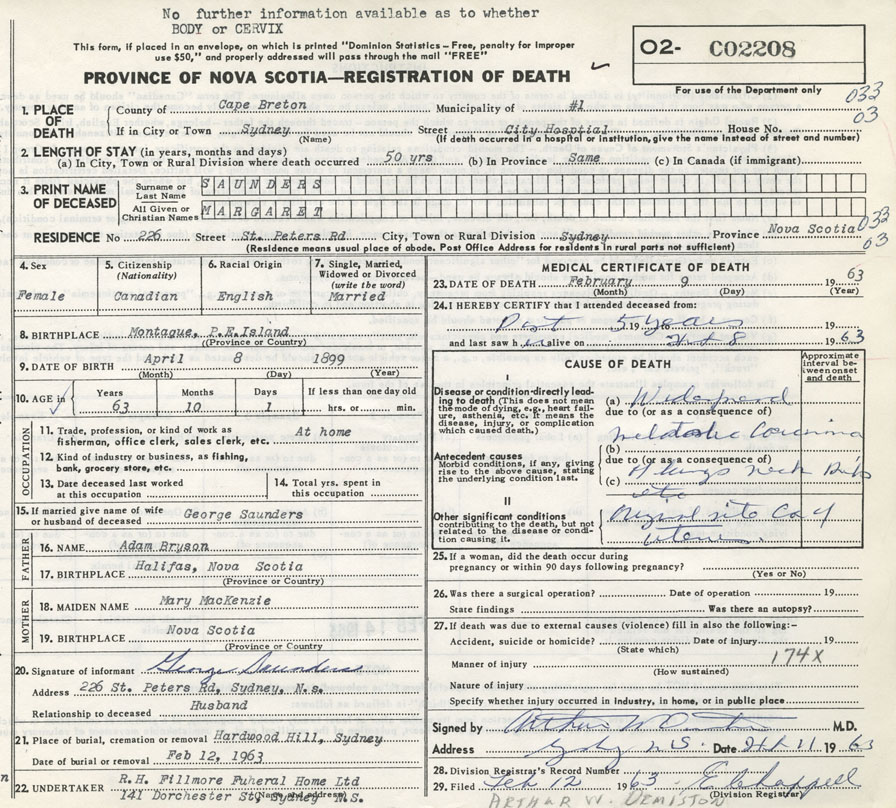 No further information available as to whether
BODY or CERVIX
This form, if placed in an envelope, on which is printed "Dominion Statistics – Free, penalty for improper
use $50," and properly addressed will pass through the mail "FREE"
PROVINCE OF NOVA SCOTIA—REGISTRATION OF DEATH
O2- C02208
For use of the Department only
033
03
1. PLACE OF DEATH
County of Cape Breton Municipality of #1
If in City or Town Sydney Street City Hosptial House No.
(Name) (If death occurred in a hospital or institution, give the name instead of street and number)
2. LENGTH OF STAY (in years, months and days)
(a) In City, Town or Rural Division where death occurred 50 yrs (b) In Province Same (c) In Canada (if immigrant)
3. PRINT NAME OF DECEASED
Surname or Last Name SAUNDERS
All Given or Christian Names MARGARET
033
03
RESIDENCE No 226 Street St. Peters Rd City, Town or Rural Division Sydney Province Nova Scotia
(Residence means usual place of abode. Post Office Address for residents in rural parts not sufficient)
4. Sex
Female
5. Citizenship
(Nationality)
Canadian
6. Racial Origin
English
7. Single, Married,
Widowed or Divorced
(write the word)
Married
8. BIRTHPLACE Montague, P.E.Island
(Province or Country)
9. DATE OF BIRTH April 8 1899
(Month) (Day) (Year)
10. AGE in
Years Months Days If less than one day old
63 10 1 hrs. or min.
OCCUPATION
11. Trade, profession, or kind of work as
fisherman, office clerk, sales clerk, etc. At home
12. Kind of industry or business, as fishing,
bank, grocery store, etc.
13. Date deceased last worked
at this occupation
14. Total yrs. spent in
this occupation
15. If married give name of wife
or husband of deceased George Saunders
FATHER
16. NAME Adam Bryson
17. BIRTHPLACE Halifas, Nova Scotia
(Province or Country)
MOTHER
18. MAIDEN NAME Mary MacKenzie
19. BIRTHPLACE Nova Scotia
(Province or Country
20. Signature of informant George Saunders
Address 226 St. Peters Rd, Sydney, N.s.
Relationship to deceased Husband
21. Place of burial, cremation or removal Hardwood Hill, Sydney
Date of burial or removal Feb 12, 1963
22. UNDERTAKER R.H. Fillmore Funeral Home Ltd
141 Dorchester St, Sydney N.S.
(Name and address)
MEDICAL CERTIFICATE OF DEATH
23. DATE OF DEATH February 9 1963
(Month) (Day) (Year)
24. I HEREBY CERTIFY that I attended deceased from:
Past 5 years 19 to 19
and last saw h alive on Feb 8 1963
CAUSE OF DEATH
Approximate interval between onset and death
I
Disease or condition directly leading to death (This does not mean the mode of dying, e.g., heart failure, asthenia, etc. It means the disease, injury, or complication which caused death.)
(a) Widespread
due to (or as a consequence of)
metastatic Carcinoma
Antecedent causes
Morbid conditions, if any, giving rise to the above cause, stating the underlying condition last.
(b)
due to (or as a consequence of)
(c) lungs neck
etc
II
Other significant conditions contributing to the death, but not related to the disease or condition causing it.
Original site Ca of
uterus.
25. If a woman, did the death occur during
pregnancy or within 90 days following pregnancy?
(Yes or No)
26. Was there a surgical operation? Date of operation 19
State findings Was there an autopsy?
27. If death was due to external causes (violence) fill in also the following:–
Accident, suicide or homicide? Date of injury 19
(State which)
174X
Manner of injury
(How sustained)
Nature of injury
Specify whether injury occurred in industry, in home, or in public place
Signed by Arthur W M.D.
Address Sydney N.S. Date Feb 11 1963
28. Division Registrar's Record Number
29. Filed Feb 12 1963 E Chappell
(Division Registrar)
ARTHUR W. DEMISTON